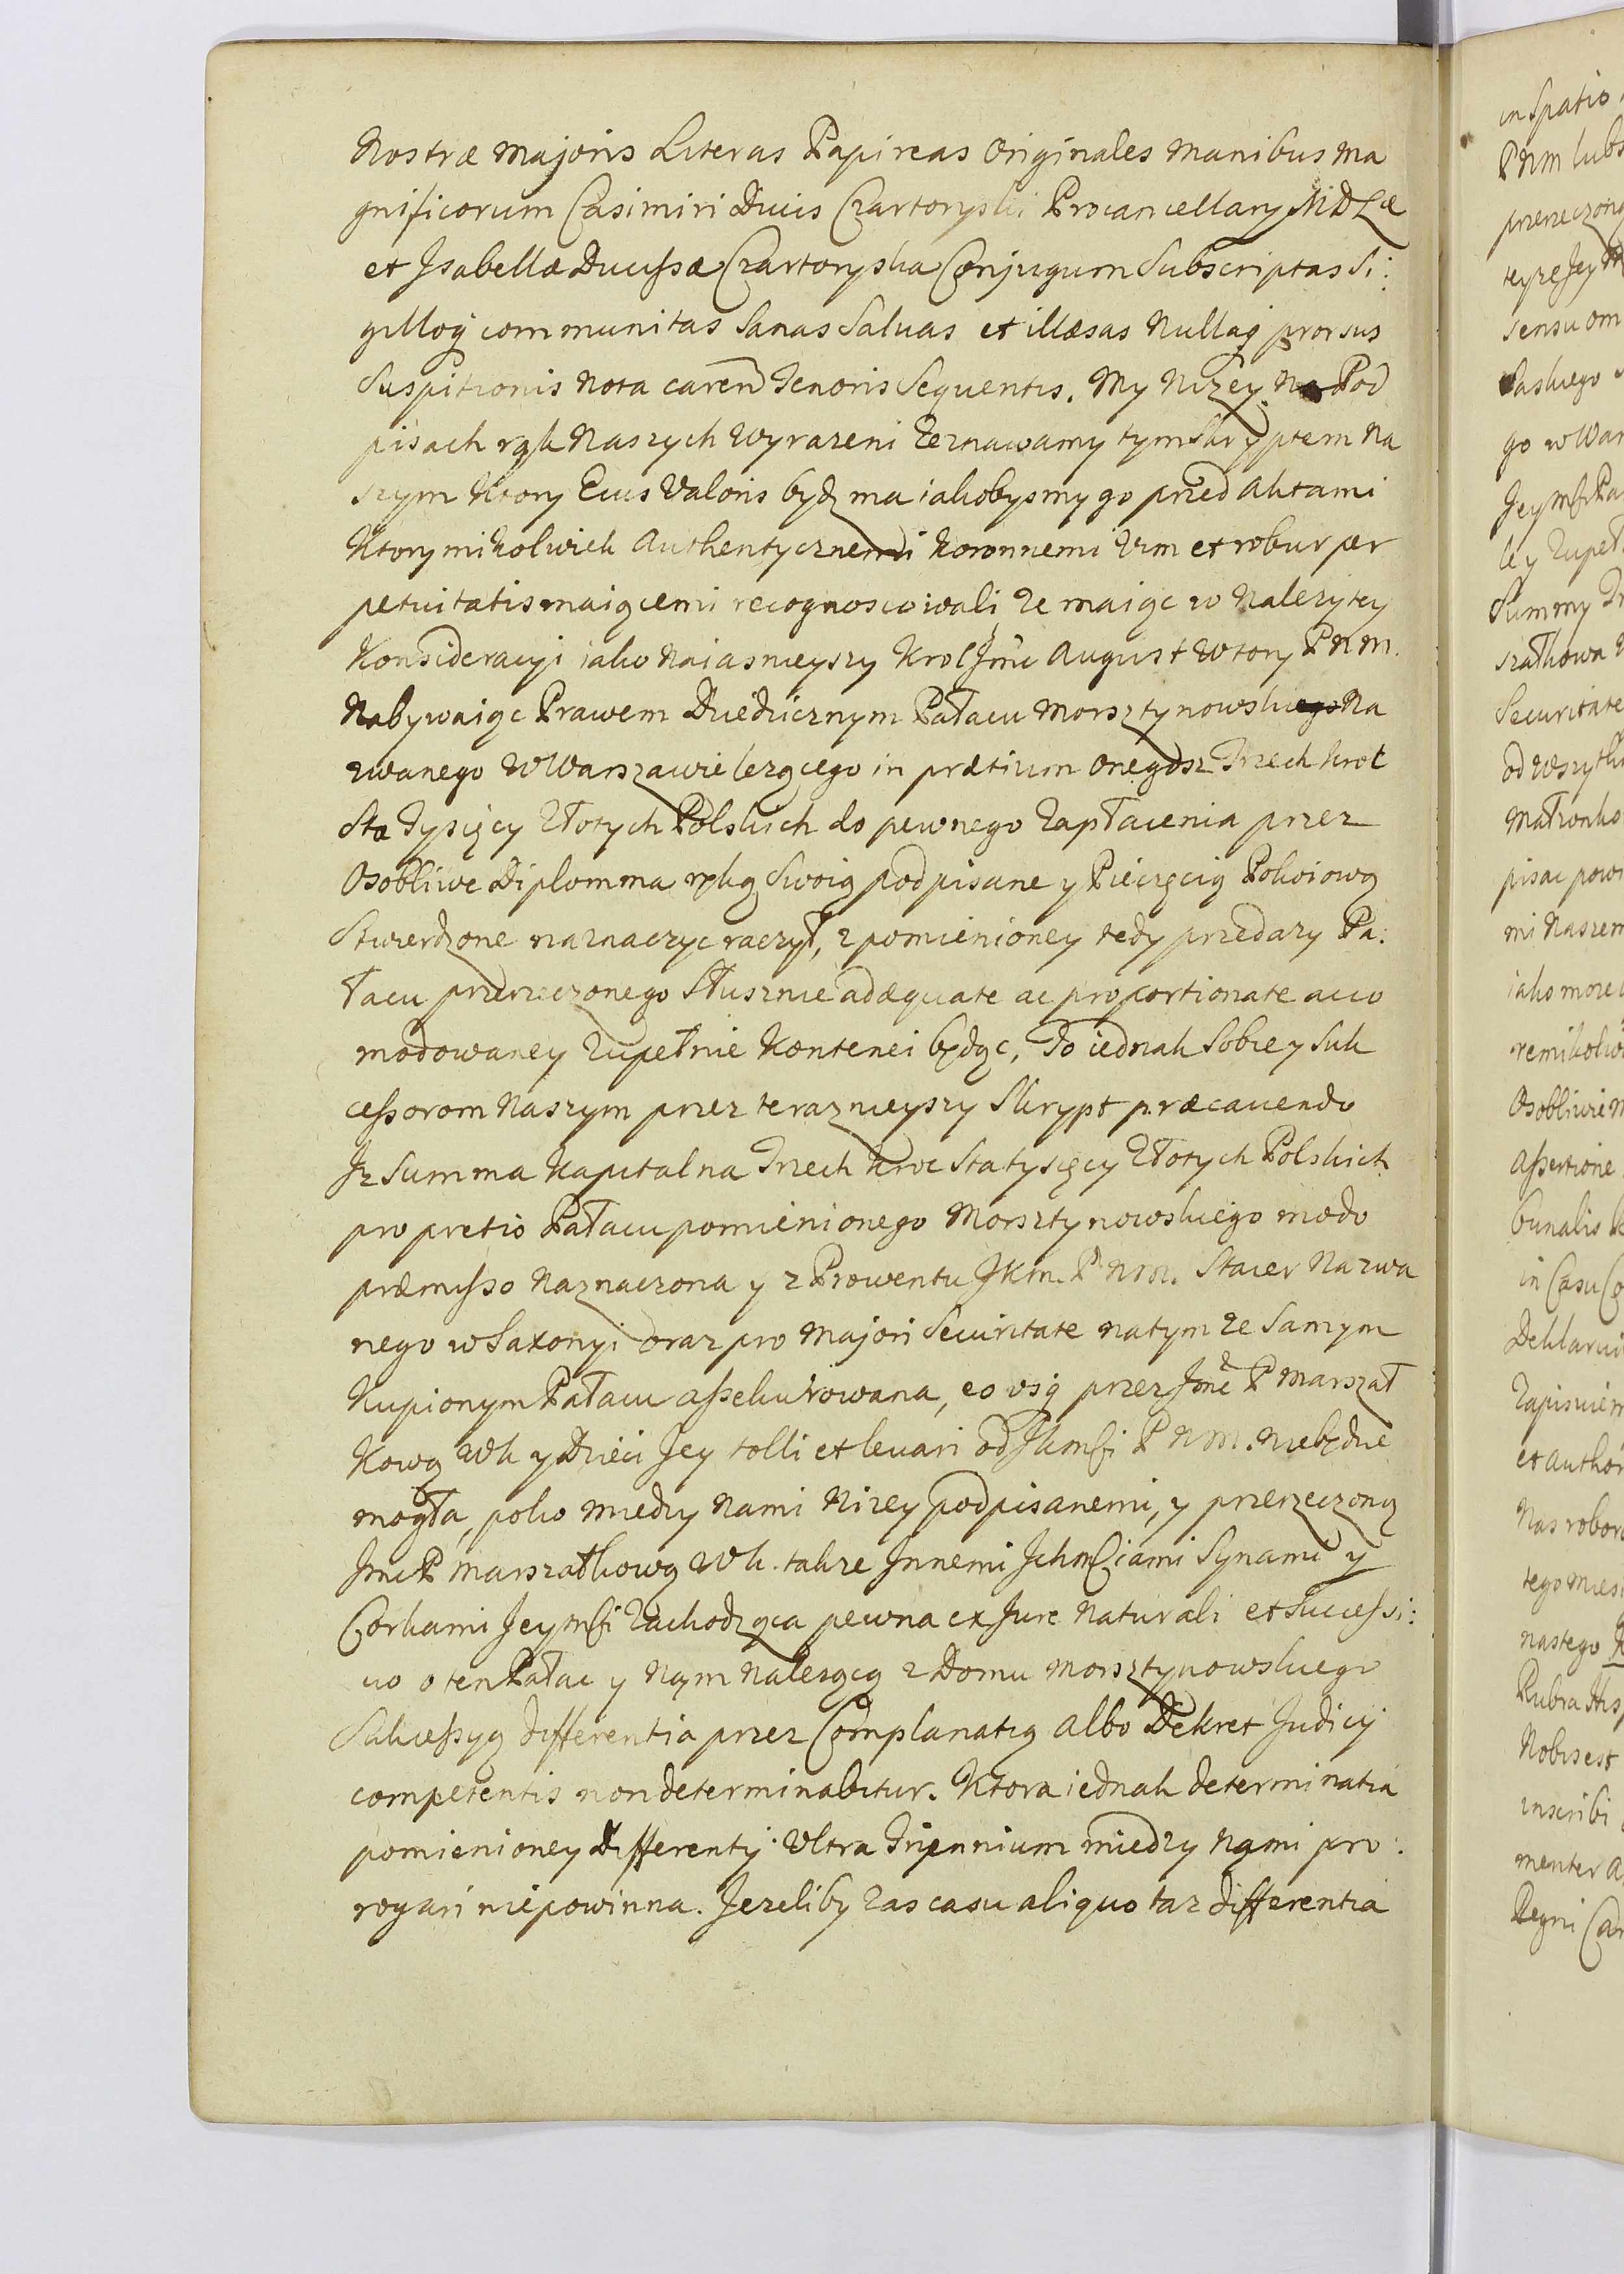 Nostræ Majoris Literas Papireas Originales Manibus Ma
gnificorum Casimiri Ducis Czartoryski Procancellarÿ M D L æ
et Isabellæ Ducissæ Czartoryska Conjugum Subscriptas Si:
gilloq communitas Sanas Saluas et illæsas Nullaq prorsus
Suspitionis Nota caren Tenoris Sequentis. My Niżey Na Pod
pisach rąk Naszych Wyrażeni Zeznawamy tym Skryptem Na
szym Ktory Eius Valoris bydz ma iakobysmy go przed Aktami
Ktorymikolwiek Authentycznemi Koronnemi Vim et robur per
petuitatis maiącemi recognoscowali, że maiąc w Nalezytey
Konsideracyi iako Naiasnieyszy Krol Jmc August Wtory P N M.
Nabywaiąc Prawem Dziedzicznym Pałacu Morsztynowskiego Na
zwanego W Warszawie lezącego in prætium onegosz Trzech kroć
Sta Tysięcy Złotych Polskich do pewnego Zapłacenia przez
Osobliwe Diplomma ręką Swoią podpisane y Pieczęcią Pokoiową
Stwierdzone naznaczyc raczył, z pomienioney tedy przedazy Pa:
łacu przerzeczonego Słusznie adæquate ac proportionate acco
modowaney Zupełnie Kontenci będąc, To iednak Sobie y Suk
cessorom Naszym przez terazneyszy Skrypt præcauendo
Jz Summa Kapitalna Trzech kroc Sta tysięcy Złotych Polskich
pro pretio Pałacu pomienionego Morsztynowskiego modo
præmisso Naznaczona y z Prowentu J K m. P Nm. Stacer Nazwa
nego w Saxonyi oraz pro Majori Securitate na tym ze Samym
Kupionym Pałacu assekurowana, eo vsq przez Jmc P Marszał
Kową W k y Dzieci Jey tolli et leuari od Jkmsci P N M. niebędzie
mogła, poko miedzy Nami Nizey podpisanemi, y przerzeczoną
Jmc P Marszałkową W k. takze Jnnemi Jchmsciami Synami y
Corkami Jeymsci Zachodząca pewna ex Jure Naturali et Successi:
uo o ten Pałac y Nąm Nalezącą z Domu Morsztynowskiego
Sukcessyą differentia przez Complanatią albo Dekret Judicÿ
competentis non determinabitur. Ktora iednak determinatia
pomienioney Differentÿ Vltra Triennium miedzy Nąmi pro:
rogari niepowinna. Jezeliby Zas casu aliquo taz differentia